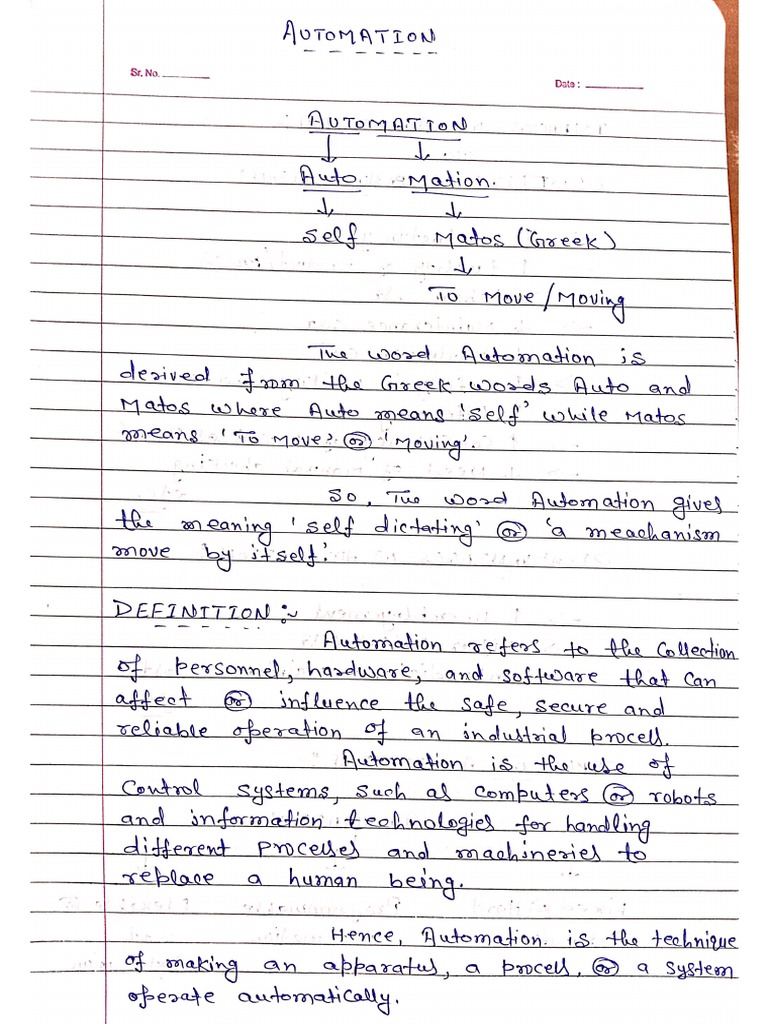 AUTOMATION
Sr. No.
Date:
AUTOMATION
Auto Mation.
Self Matos (Greek)
To Move/Moving
The word Automation is
derived from the Greek words Auto and
Matos where Auto means 'self' while Matos
means 'To Move' or 'Moving'.
So, The word Automation gives
the meaning 'self dictating' or 'a meachanism
move by itself.'
DEFINITION:~
Automation refers to the collection
of personnel, hardware, and software that can
affect or influence the safe, secure and
reliable operation of an industrial process.
Automation is the use of
Control systems, such as computers or robots
and information technologies for handling
different processes and machineries to
replace a human being.
Hence, Automation is the technique
of making an apparatus, a process, or a system
operate automatically.